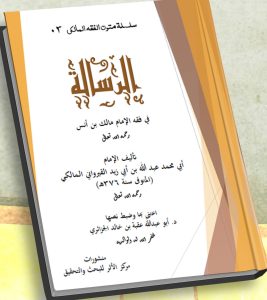 سلسلة متون الفقه المالكي ٠٣
الرسالة
في فقه الإمام مالك بن أنس
رحمه الله تعالى
تأليف الإمام
أبي محمد عبد الله بن أبي زيد القيرواني المالكي
(المتوفى سنة ٣٧٦هـ)
رحمه الله تعالى
اعتنى بها وضبط نصها
د. أبو عبدالله عقبة بن خالد الجزائري
غفر الله له ولوالديه
منشورات
مركز الأثر للبحث والتحقيق